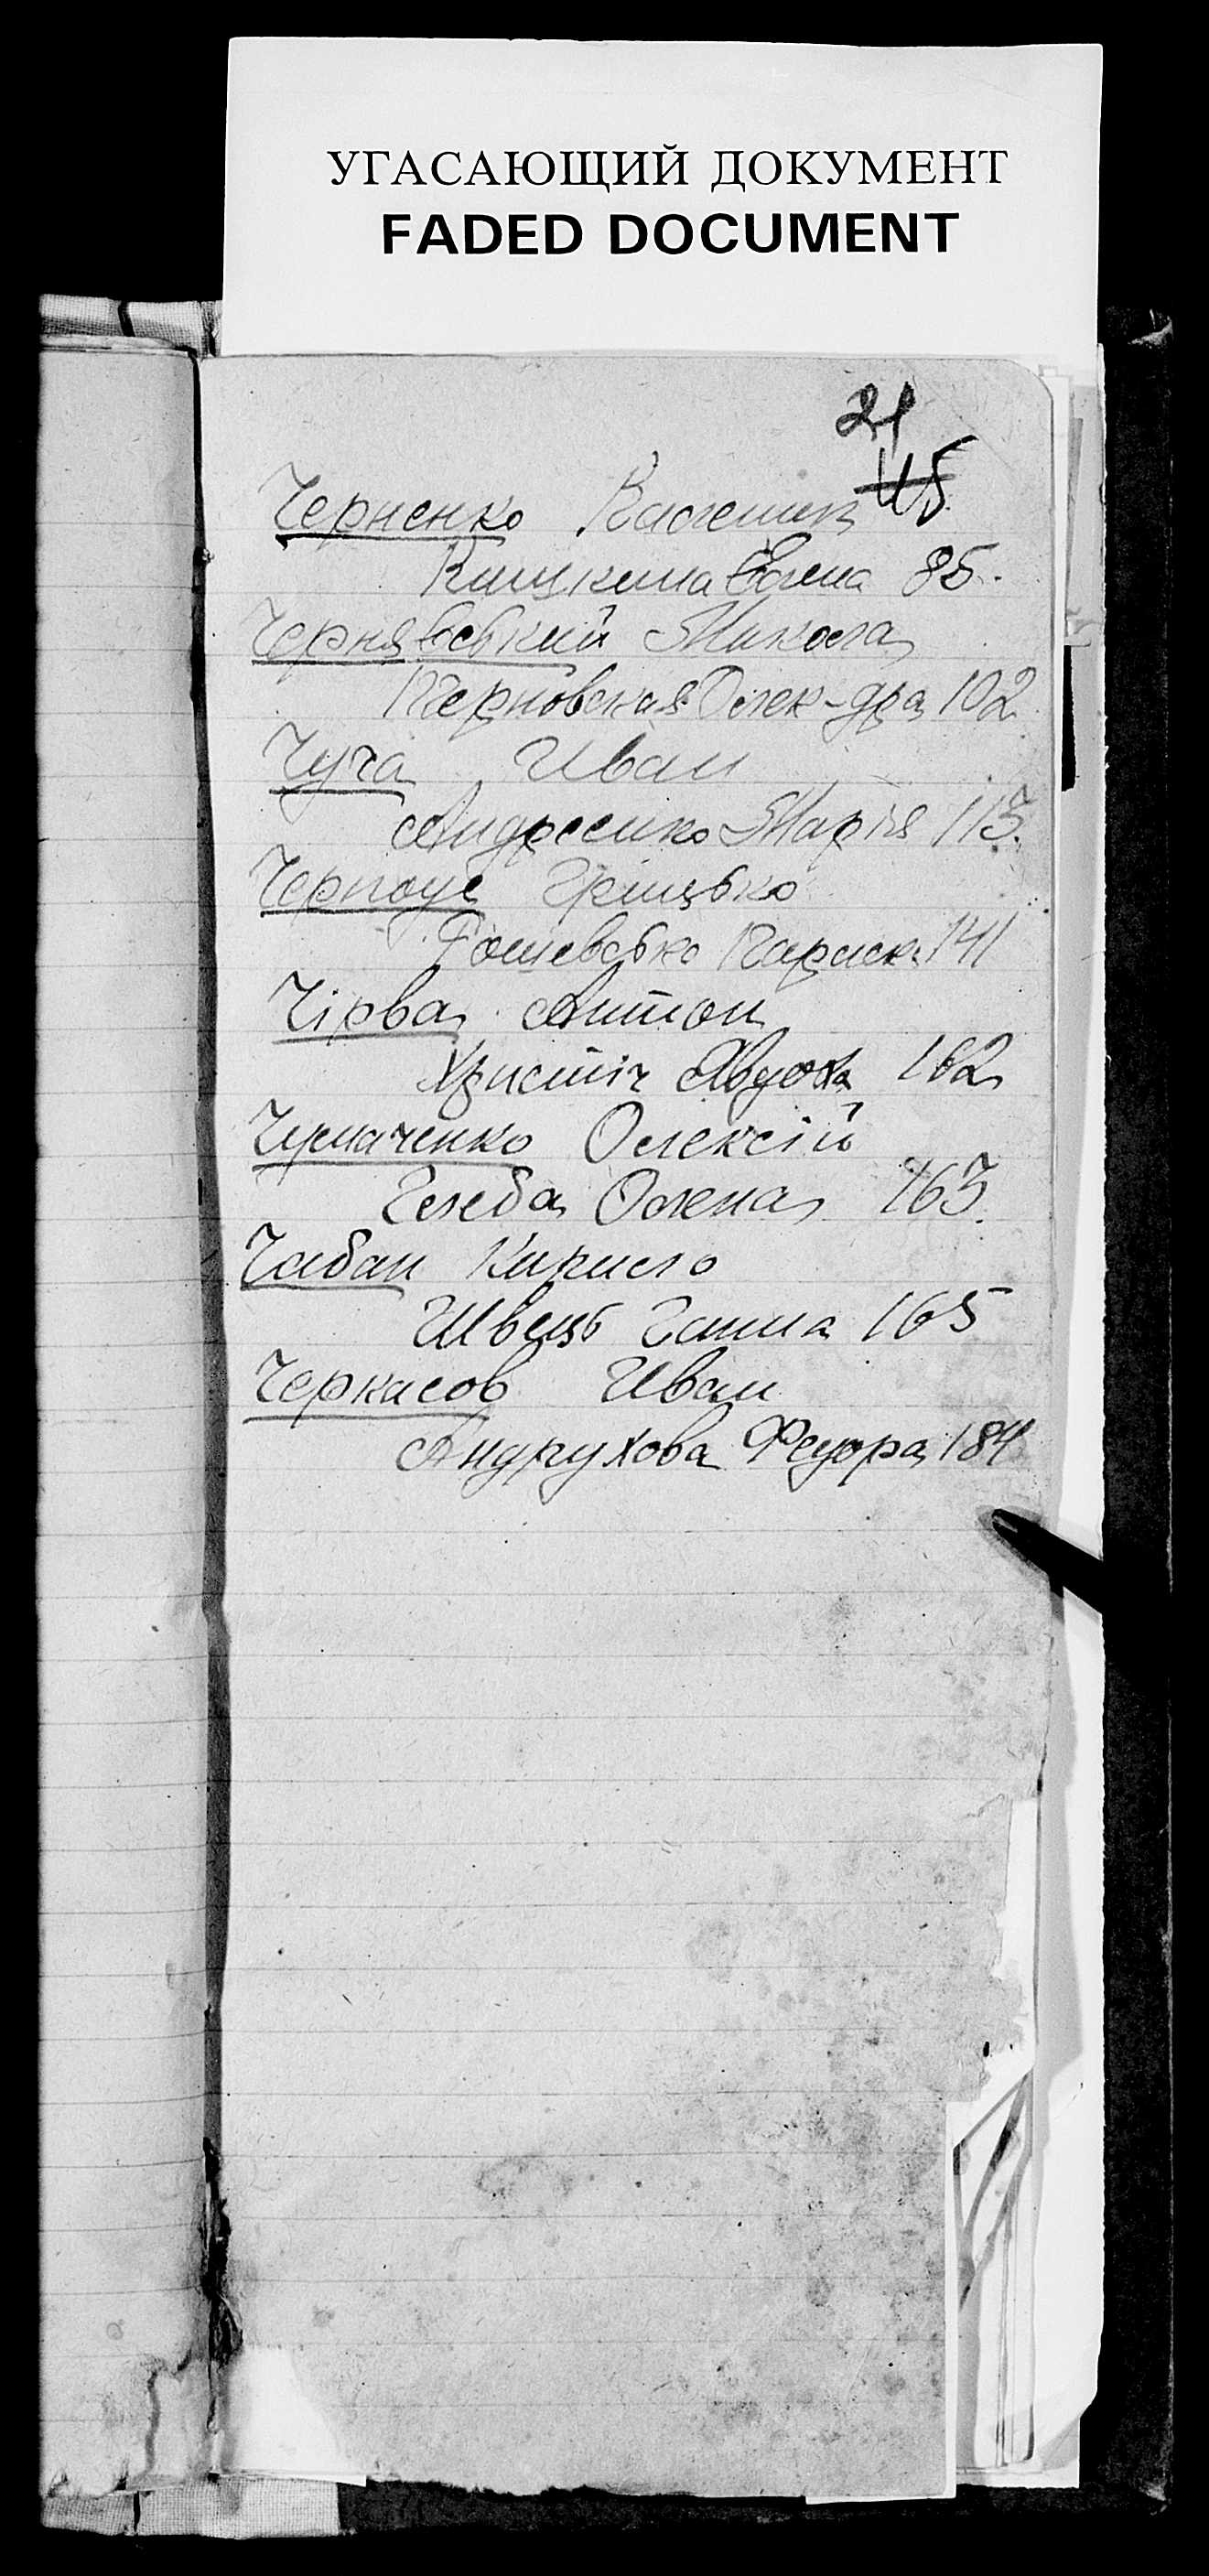 УГАСАЮЩИЙ ДОКУМЕНТ
FADED DOCUMENT
21
115
Черненко Василий
Кицкина Елена 85.
Чернявський Микола
Терновская Олек-дра 102
Чуча Иван
Андреенко Марія 113.
Черноус Гріцько
Параска 141
Чірва Антон
Христіч Явдоха 162
Чумаченко Олексій
Гелеба Олена 163.
Чабан Кирило
Швець Ганна 165
Черкасов Иван
Андрухова Федора 184